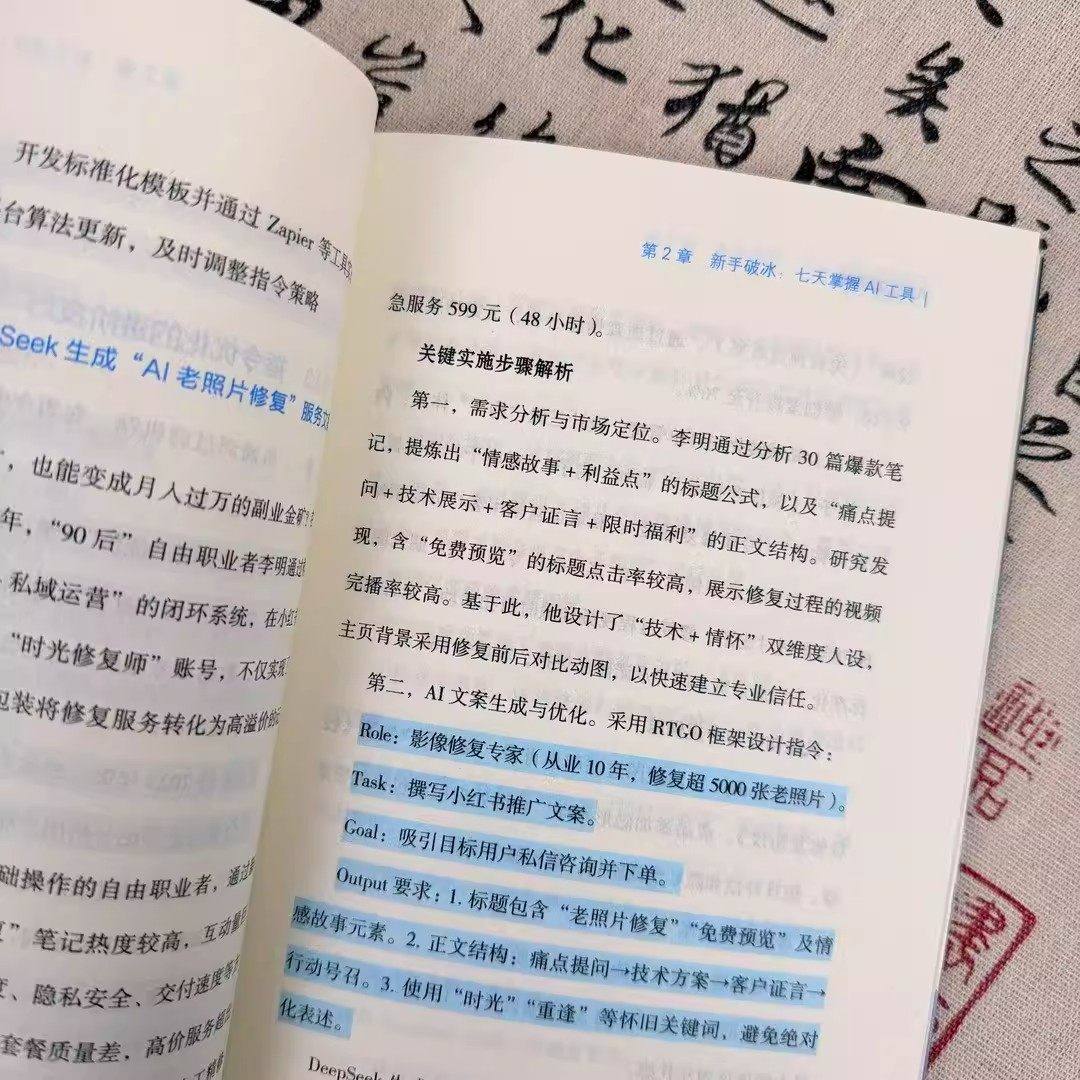 开发标准化模板并通过 Zapier 等工具
台算法更新，及时调整指令策略
Seek 生成“AI 老照片修复”服务文
，也能变成月入过万的副业金矿
年，“90 后”自由职业者李明通过
私域运营”的闭环系统，在小红
“时光修复师”账号，不仅实现
包装将修复服务转化为高溢价的
础操作的自由职业者，通过
”笔记热度较高，互动量
、隐私安全、交付速度等
套餐质量差，高价服务超
第 2 章 新手破冰：七天掌握 AI 工具
急服务 599 元（48 小时）。
关键实施步骤解析
第一，需求分析与市场定位。李明通过分析 30 篇爆款笔
记，提炼出“情感故事 + 利益点”的标题公式，以及“痛点提
问 + 技术展示 + 客户证言 + 限时福利”的正文结构。研究发
现，含“免费预览”的标题点击率较高，展示修复过程的视频
完播率较高。基于此，他设计了“技术 + 情怀”双维度人设，
主页背景采用修复前后对比动图，以快速建立专业信任。
第二，AI 文案生成与优化。采用 RTGO 框架设计指令：
Role：影像修复专家（从业 10 年，修复超 5000 张老照片）。
Task：撰写小红书推广文案。
Goal：吸引目标用户私信咨询并下单。
Output 要求：1. 标题包含“老照片修复”“免费预览”及情
感故事元素。2. 正文结构：痛点提问→技术方案→客户证言→
行动号召。3. 使用“时光”“重逢”等怀旧关键词，避免绝对
化表述。
DeepSeek